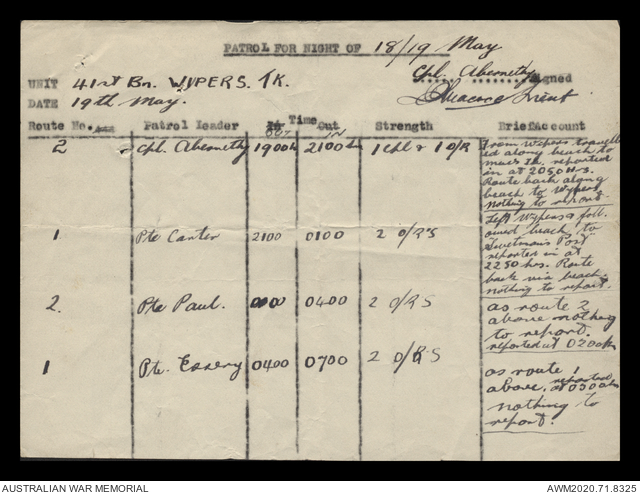 PATROL FOR NIGHT OF 18/19 May
UNIT 41st Bn. WYPERS. TK.
Cpl. Abernethy Signed
DATE 19th May.
Route No. Patrol Leader Time Strength Brief account
In Out
OUT IN
2 Cpl. Abernethy 1900h 2100h 1 Cpl & 1 O/R
From Wypers travell
ed along beach to
reported
in at 2050 Hrs.
Route back along
beach to Wypers
nothing to report.
1 Pte Canter 2100 0100 2 O/R'S
Left Wypers & foll
owed beach to
Post
reported in at
2250 hrs. Route
back via beach
nothing to report.
2. Pte Paul. 0400 2 O/RS
as route 2
above nothing
to report.
reported at 0200h
1 Pte. Essery 0400 0700 2 O/R'S
as route 1
above. reported
nothing to
report.
AUSTRALIAN WAR MEMORIAL
AWM2020.71.8325